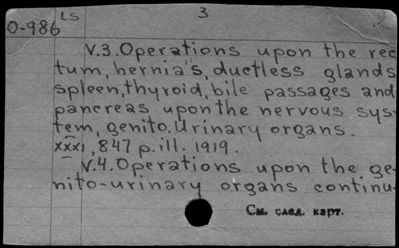 LS 3
O-986
V.3. Operations upon the rec
tum, hernia's, ductless glands
spleen, thyroid, bile passages and
pancreas upon the nervous sys-
tem, genito. Urinary organs.
xxxi, 847 p. ill. 1919.
V.4. Operations upon the ge-
nito-urinary organs continu-
См. след. карт.